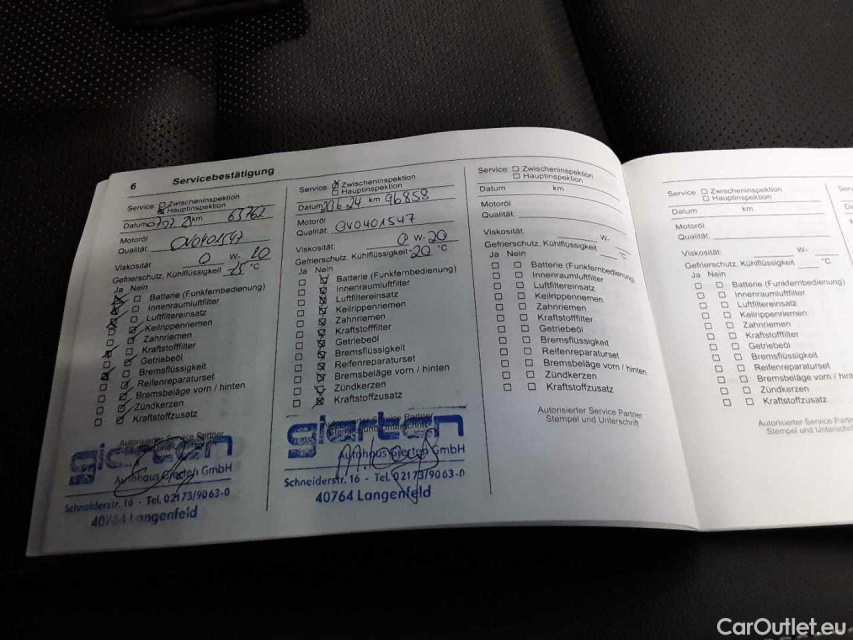 6 Servicebestätigung
Service: Zwischeninspektion
Hauptinspektion
Datum km 63762
Motoröl
Qualität: OV0401547
Viskosität: 0 W- 20
Gefrierschutz, Kühlflüssigkeit -25 °C
Ja Nein
Batterie (Funkfernbedienung)
Innenraumluftfilter
Luftfiltereinsatz
Keilrippenriemen
Zahnriemen
Kraftstofffilter
Getriebeöl
Bremsflüssigkeit
Reifenreparaturset
Bremsbeläge vorn / hinten
Zündkerzen
Kraftstoffzusatz
Autorisierter Service Partner
gierten
Autohaus Gierten GmbH
Schneiderstr. 16 - Tel. 02173/9063-0
40764 Langenfeld
Service: Zwischeninspektion
Hauptinspektion
Datum km 96858
Motoröl
Qualität: OV0401547
Viskosität: 0 W- 20
Gefrierschutz, Kühlflüssigkeit -20 °C
Ja Nein
Batterie (Funkfernbedienung)
Innenraumluftfilter
Luftfiltereinsatz
Keilrippenriemen
Zahnriemen
Kraftstofffilter
Getriebeöl
Bremsflüssigkeit
Reifenreparaturset
Bremsbeläge vorn / hinten
Zündkerzen
Kraftstoffzusatz
Autorisierter Service Partner
gierten
Autohaus Gierten GmbH
Schneiderstr. 16 - Tel. 02173/9063-0
40764 Langenfeld
Service: Zwischeninspektion
Hauptinspektion
Datum km
Motoröl
Qualität:
Viskosität: W-
Gefrierschutz, Kühlflüssigkeit °C
Ja Nein
Batterie (Funkfernbedienung)
Innenraumluftfilter
Luftfiltereinsatz
Keilrippenriemen
Zahnriemen
Kraftstofffilter
Getriebeöl
Bremsflüssigkeit
Reifenreparaturset
Bremsbeläge vorn / hinten
Zündkerzen
Kraftstoffzusatz
Autorisierter Service Partner
Stempel und Unterschrift
Service: Zwischeninspektion
Hauptinspektion
Datum km
Motoröl
Qualität:
Viskosität: W-
Gefrierschutz, Kühlflüssigkeit °C
Ja Nein
Batterie (Funkfernbedienung)
Innenraumluftfilter
Luftfiltereinsatz
Keilrippenriemen
Zahnriemen
Kraftstofffilter
Getriebeöl
Bremsflüssigkeit
Reifenreparaturset
Bremsbeläge vorn / hint
Zündkerzen
Kraftstoffzusatz
Autorisierter Service Partn
Stempel und Unterschrif
CarOutlet.eu